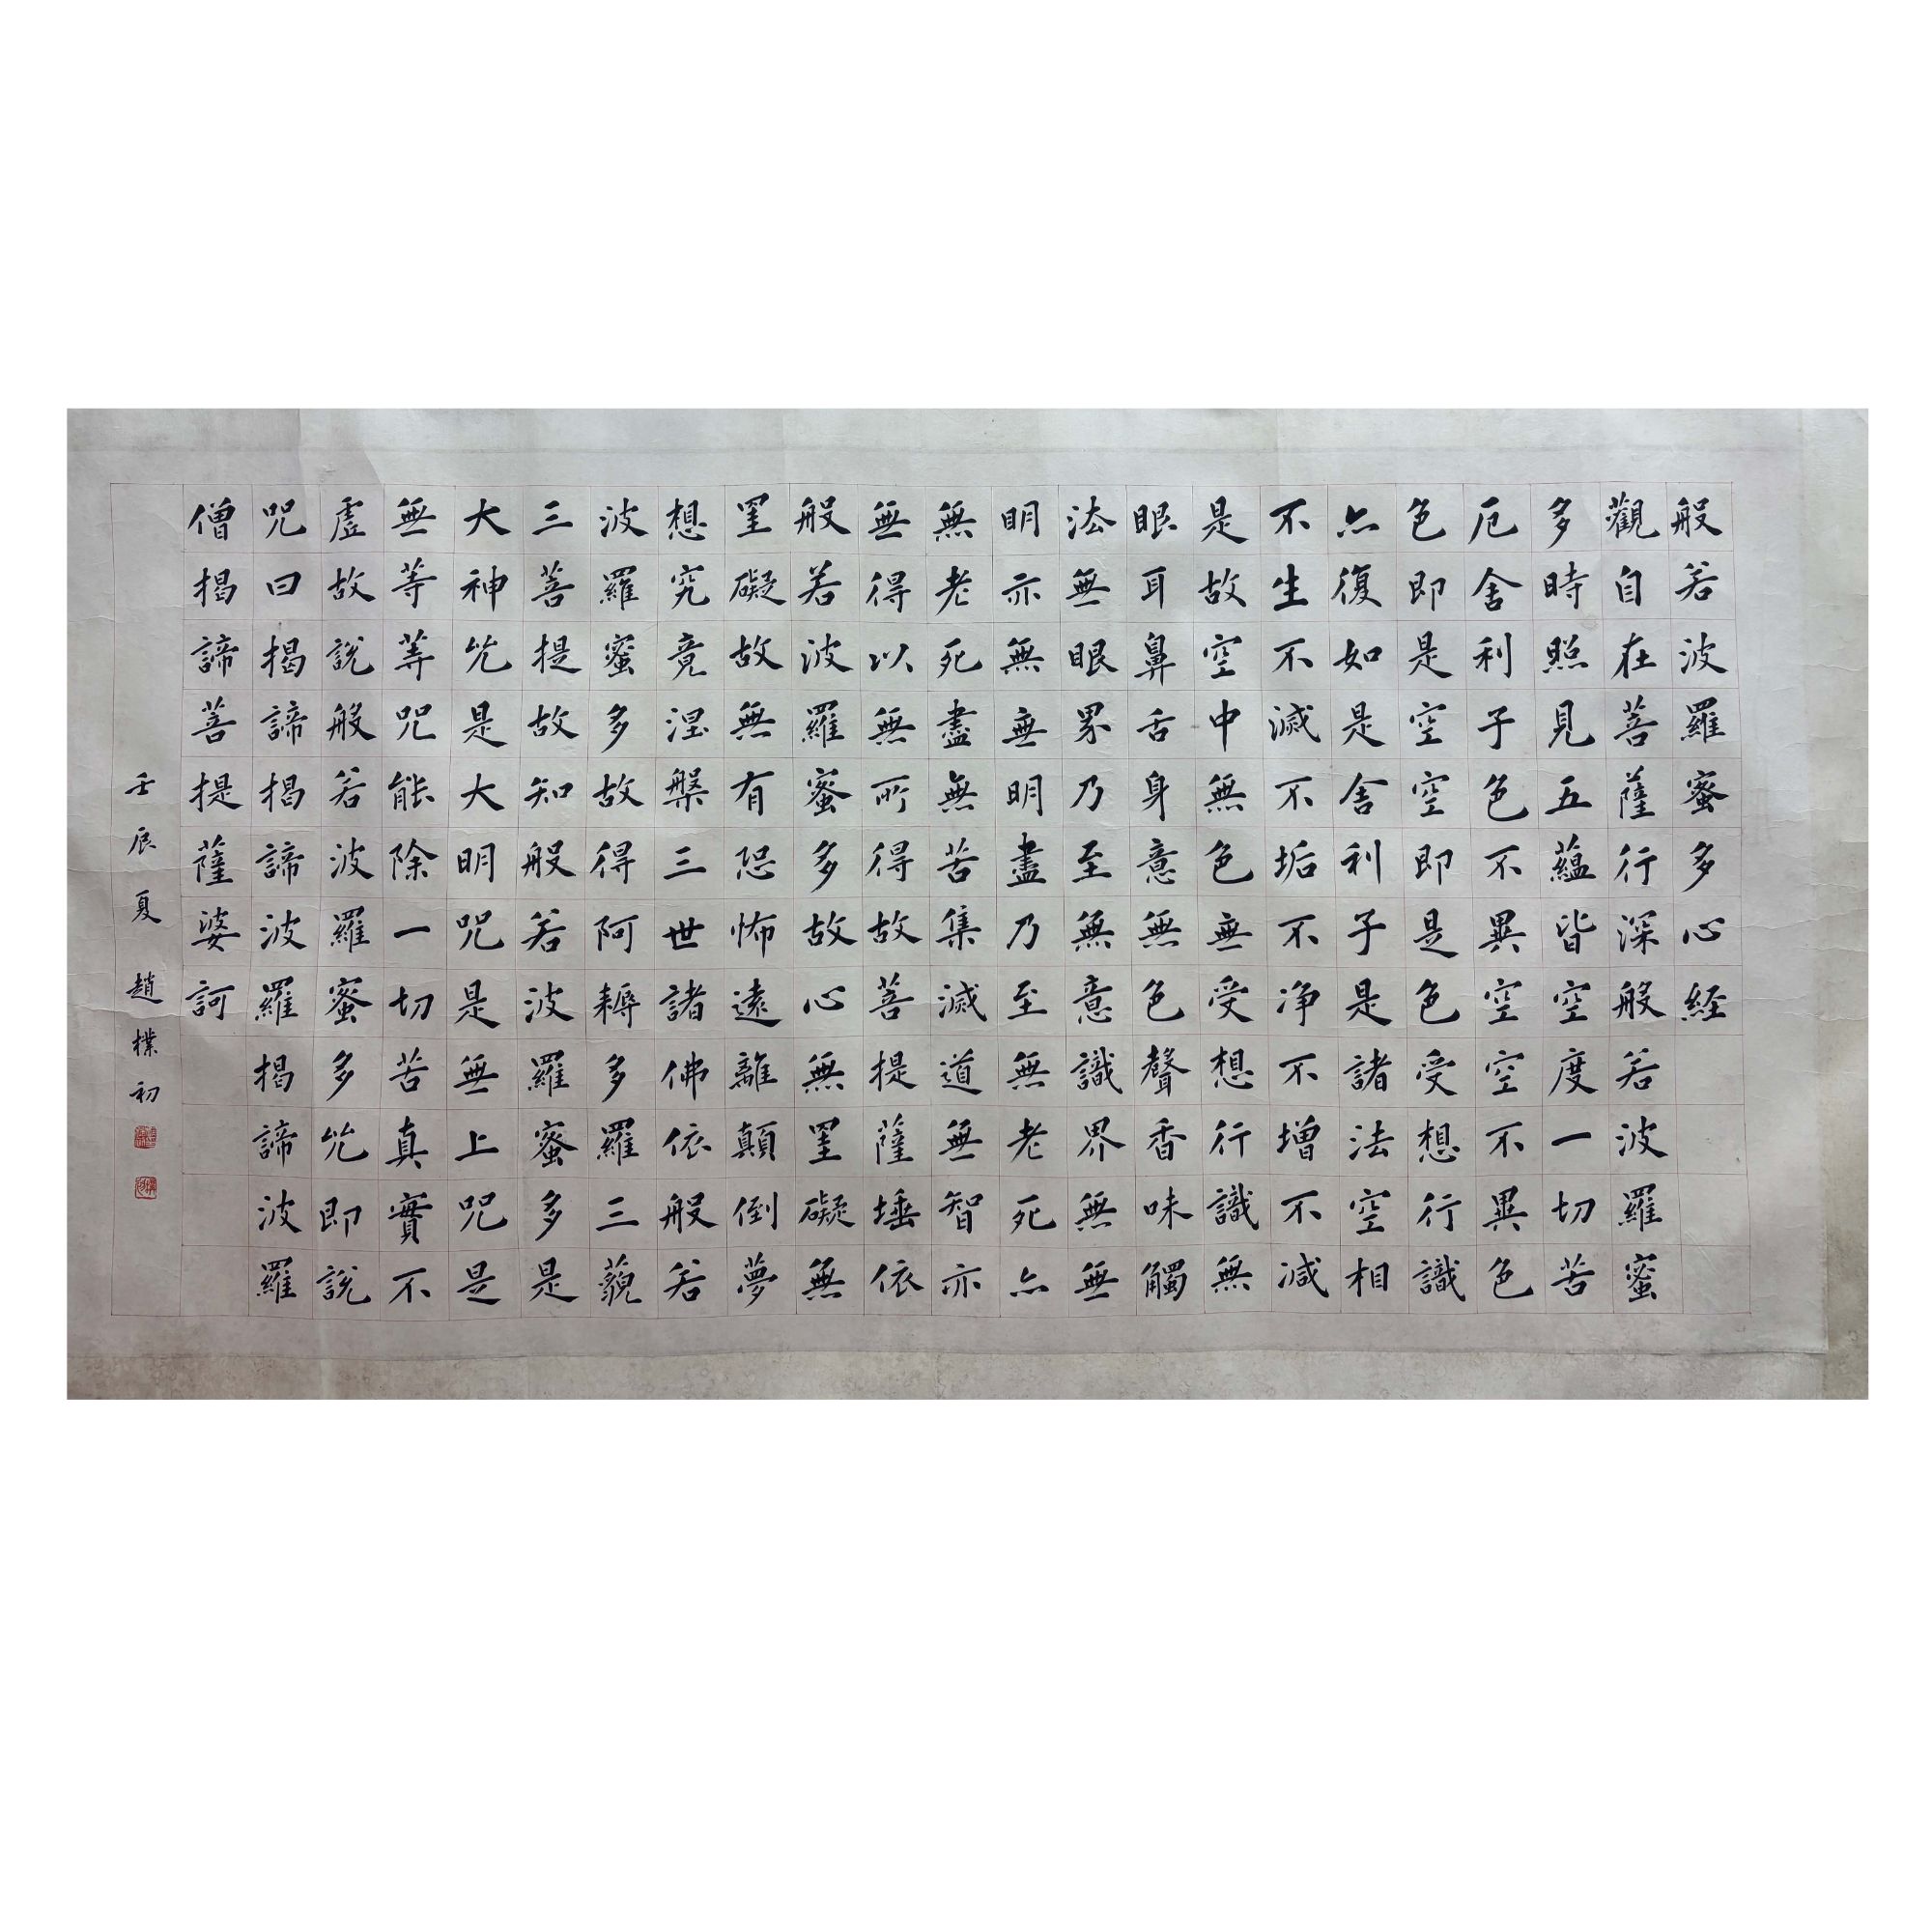 般若波羅蜜多心経
觀自在菩薩行深般若波羅蜜
多時照見五蘊皆空度一切苦
厄舍利子色不異空空不異色
色即是空空即是色受想行識
亦復如是舍利子是諸法空相
不生不滅不垢不净不增不減
是故空中無色無受想行識無
眼耳鼻舌身意無色聲香味觸
法無眼界乃至無意識界無無
明亦無無明盡乃至無老死亦
無老死盡無苦集滅道無智亦
無得以無所得故菩提薩埵依
般若波羅蜜多故心無罣礙無
罣礙故無有恐怖遠離顛倒夢
想究竟涅槃三世諸佛依般若
波羅蜜多故得阿耨多羅三藐
三菩提故知般若波羅蜜多是
大神咒是大明咒是無上咒是
無等等咒能除一切苦真實不
虛故說般若波羅蜜多咒即說
咒曰揭諦揭諦波羅揭諦波羅
僧揭諦菩提薩婆訶
壬辰夏 趙樸初